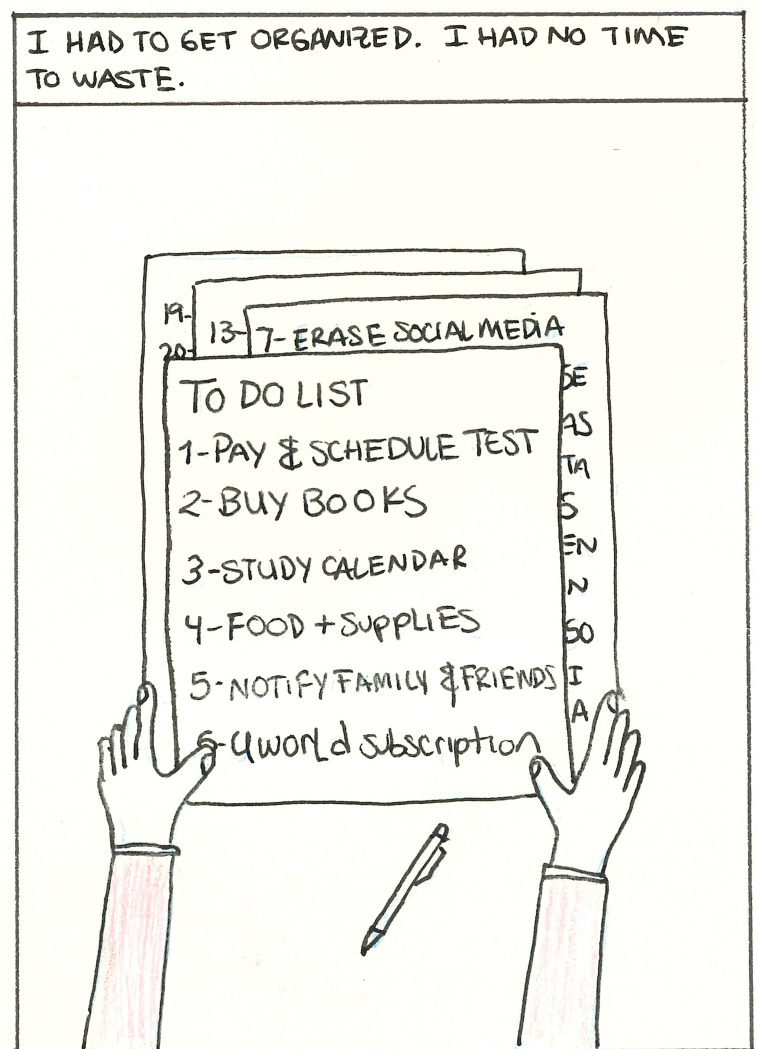 I HAD TO GET ORGANIZED. I HAD NO TIME
TO WASTE.
19-
20-
13-
7- ERASE SOCIAL MEDIA
TO DO LIST
1-PAY & SCHEDULE TEST
2-BUY BOOKS
3-STUDY CALENDAR
4-FOOD + SUPPLIES
5-NOTIFY FAMILY & FRIENDS
6-Uworld subscription
SE
AS
TA
S
EN
N
SO
I
A